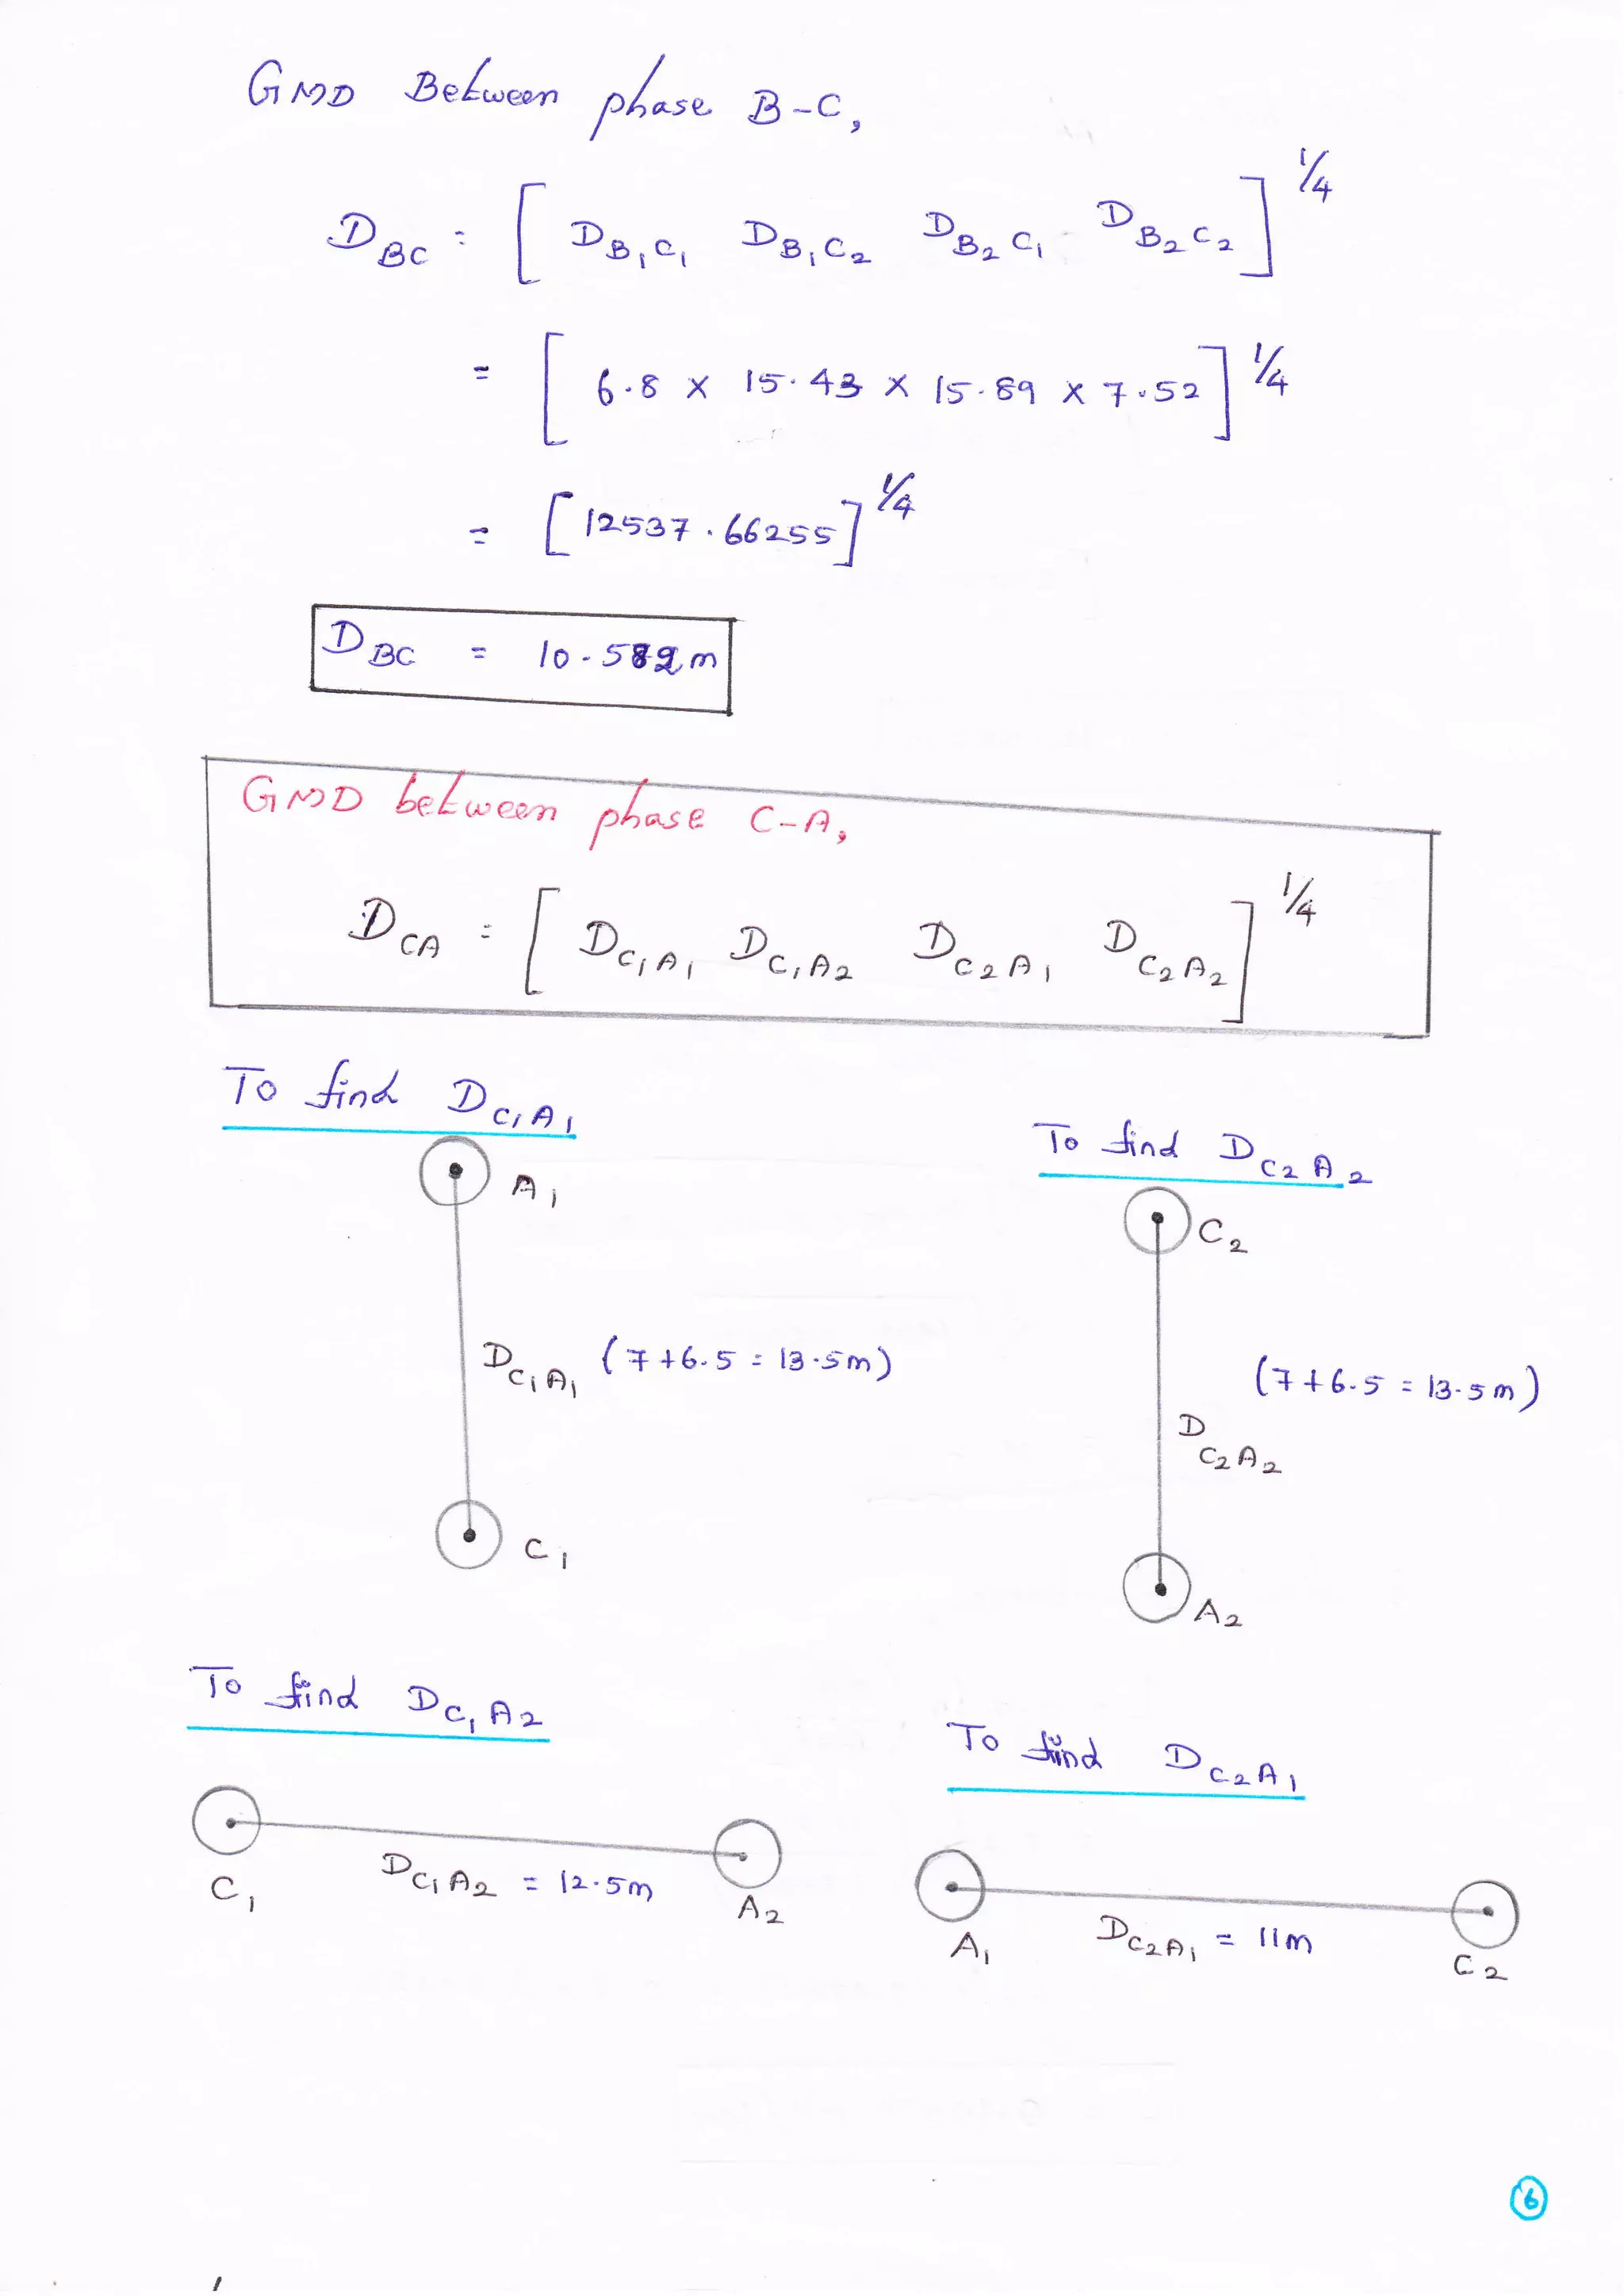 GMD Between phase B-C,
D_BC = [ D_B1C1 D_B1C2 D_B2C1 D_B2C2 ]^1/4
= [ 6.8 × 15.43 × 15.89 × 7.52 ]^1/4
= [ 12537.66255 ]^1/4
D_BC = 10.582m
GMD between phase C-A,
D_CA = [ D_C1A1 D_C1A2 D_C2A1 D_C2A2 ]^1/4
To find D_C1A1
A1
D_C1A1 (7+6.5 = 13.5m)
C1
To find D_C2A2
C2
(7+6.5 = 13.5m)
D_C2A2
A2
To find D_C1A2
C1
D_C1A2 = 12.5m
A2
To find D_C2A1
A1
D_C2A1 = 11m
C2
6